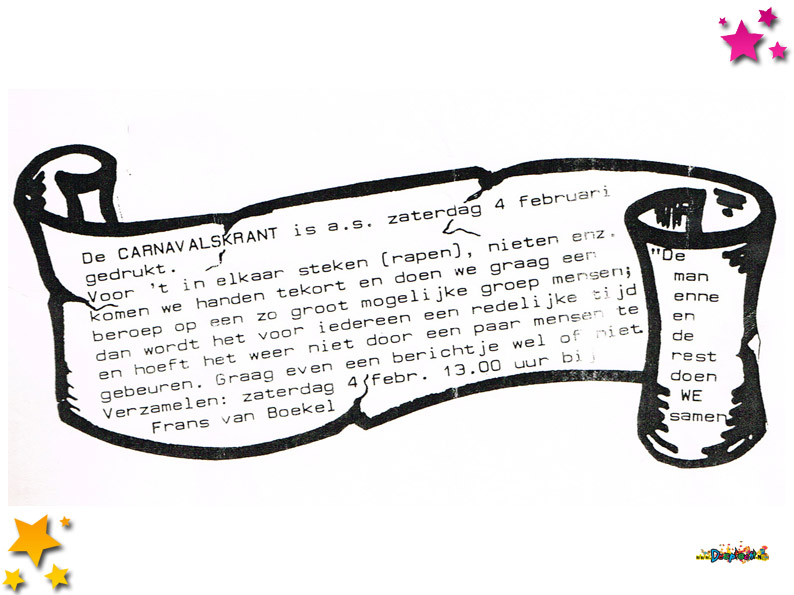 De CARNAVALSKRANT is a.s. zaterdag 4 februari
gedrukt.
Voor 't in elkaar steken (rapen), nieten enz.
komen we handen tekort en doen we graag een
beroep op een zo groot mogelijke groep mensen;
dan wordt het voor iedereen een redelijke tijd
en hoeft het weer niet door een paar mensen te
gebeuren. Graag even een berichtje wel of niet.
Verzamelen: zaterdag 4 febr. 13.00 uur bij
Frans van Boekel
"De
man
enne
en
de
rest
doen
WE
samen